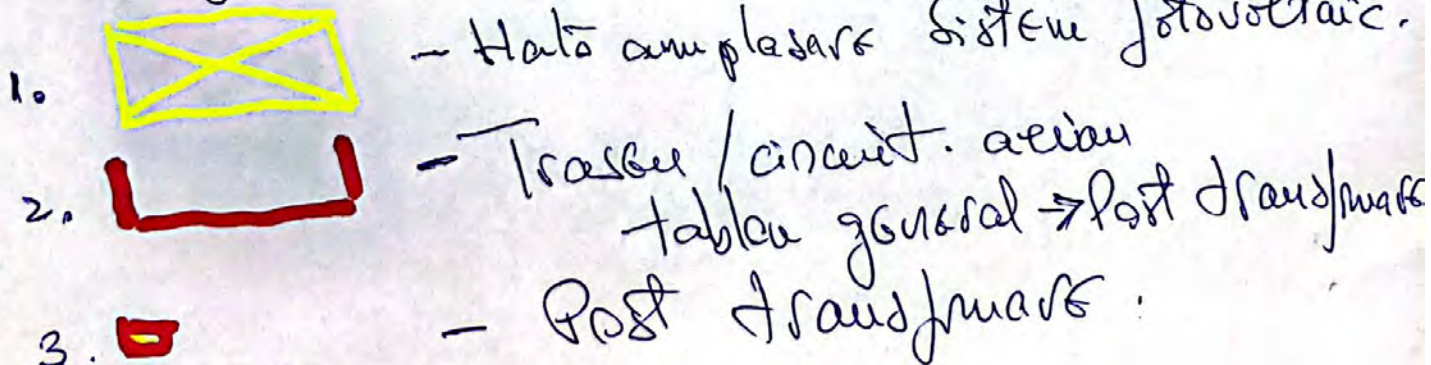 1. - Hală amplasare sistem fotovoltaic.
2. - Traseu / circuit. aerian
tablou general → Post transformare
3. - Post transformare.